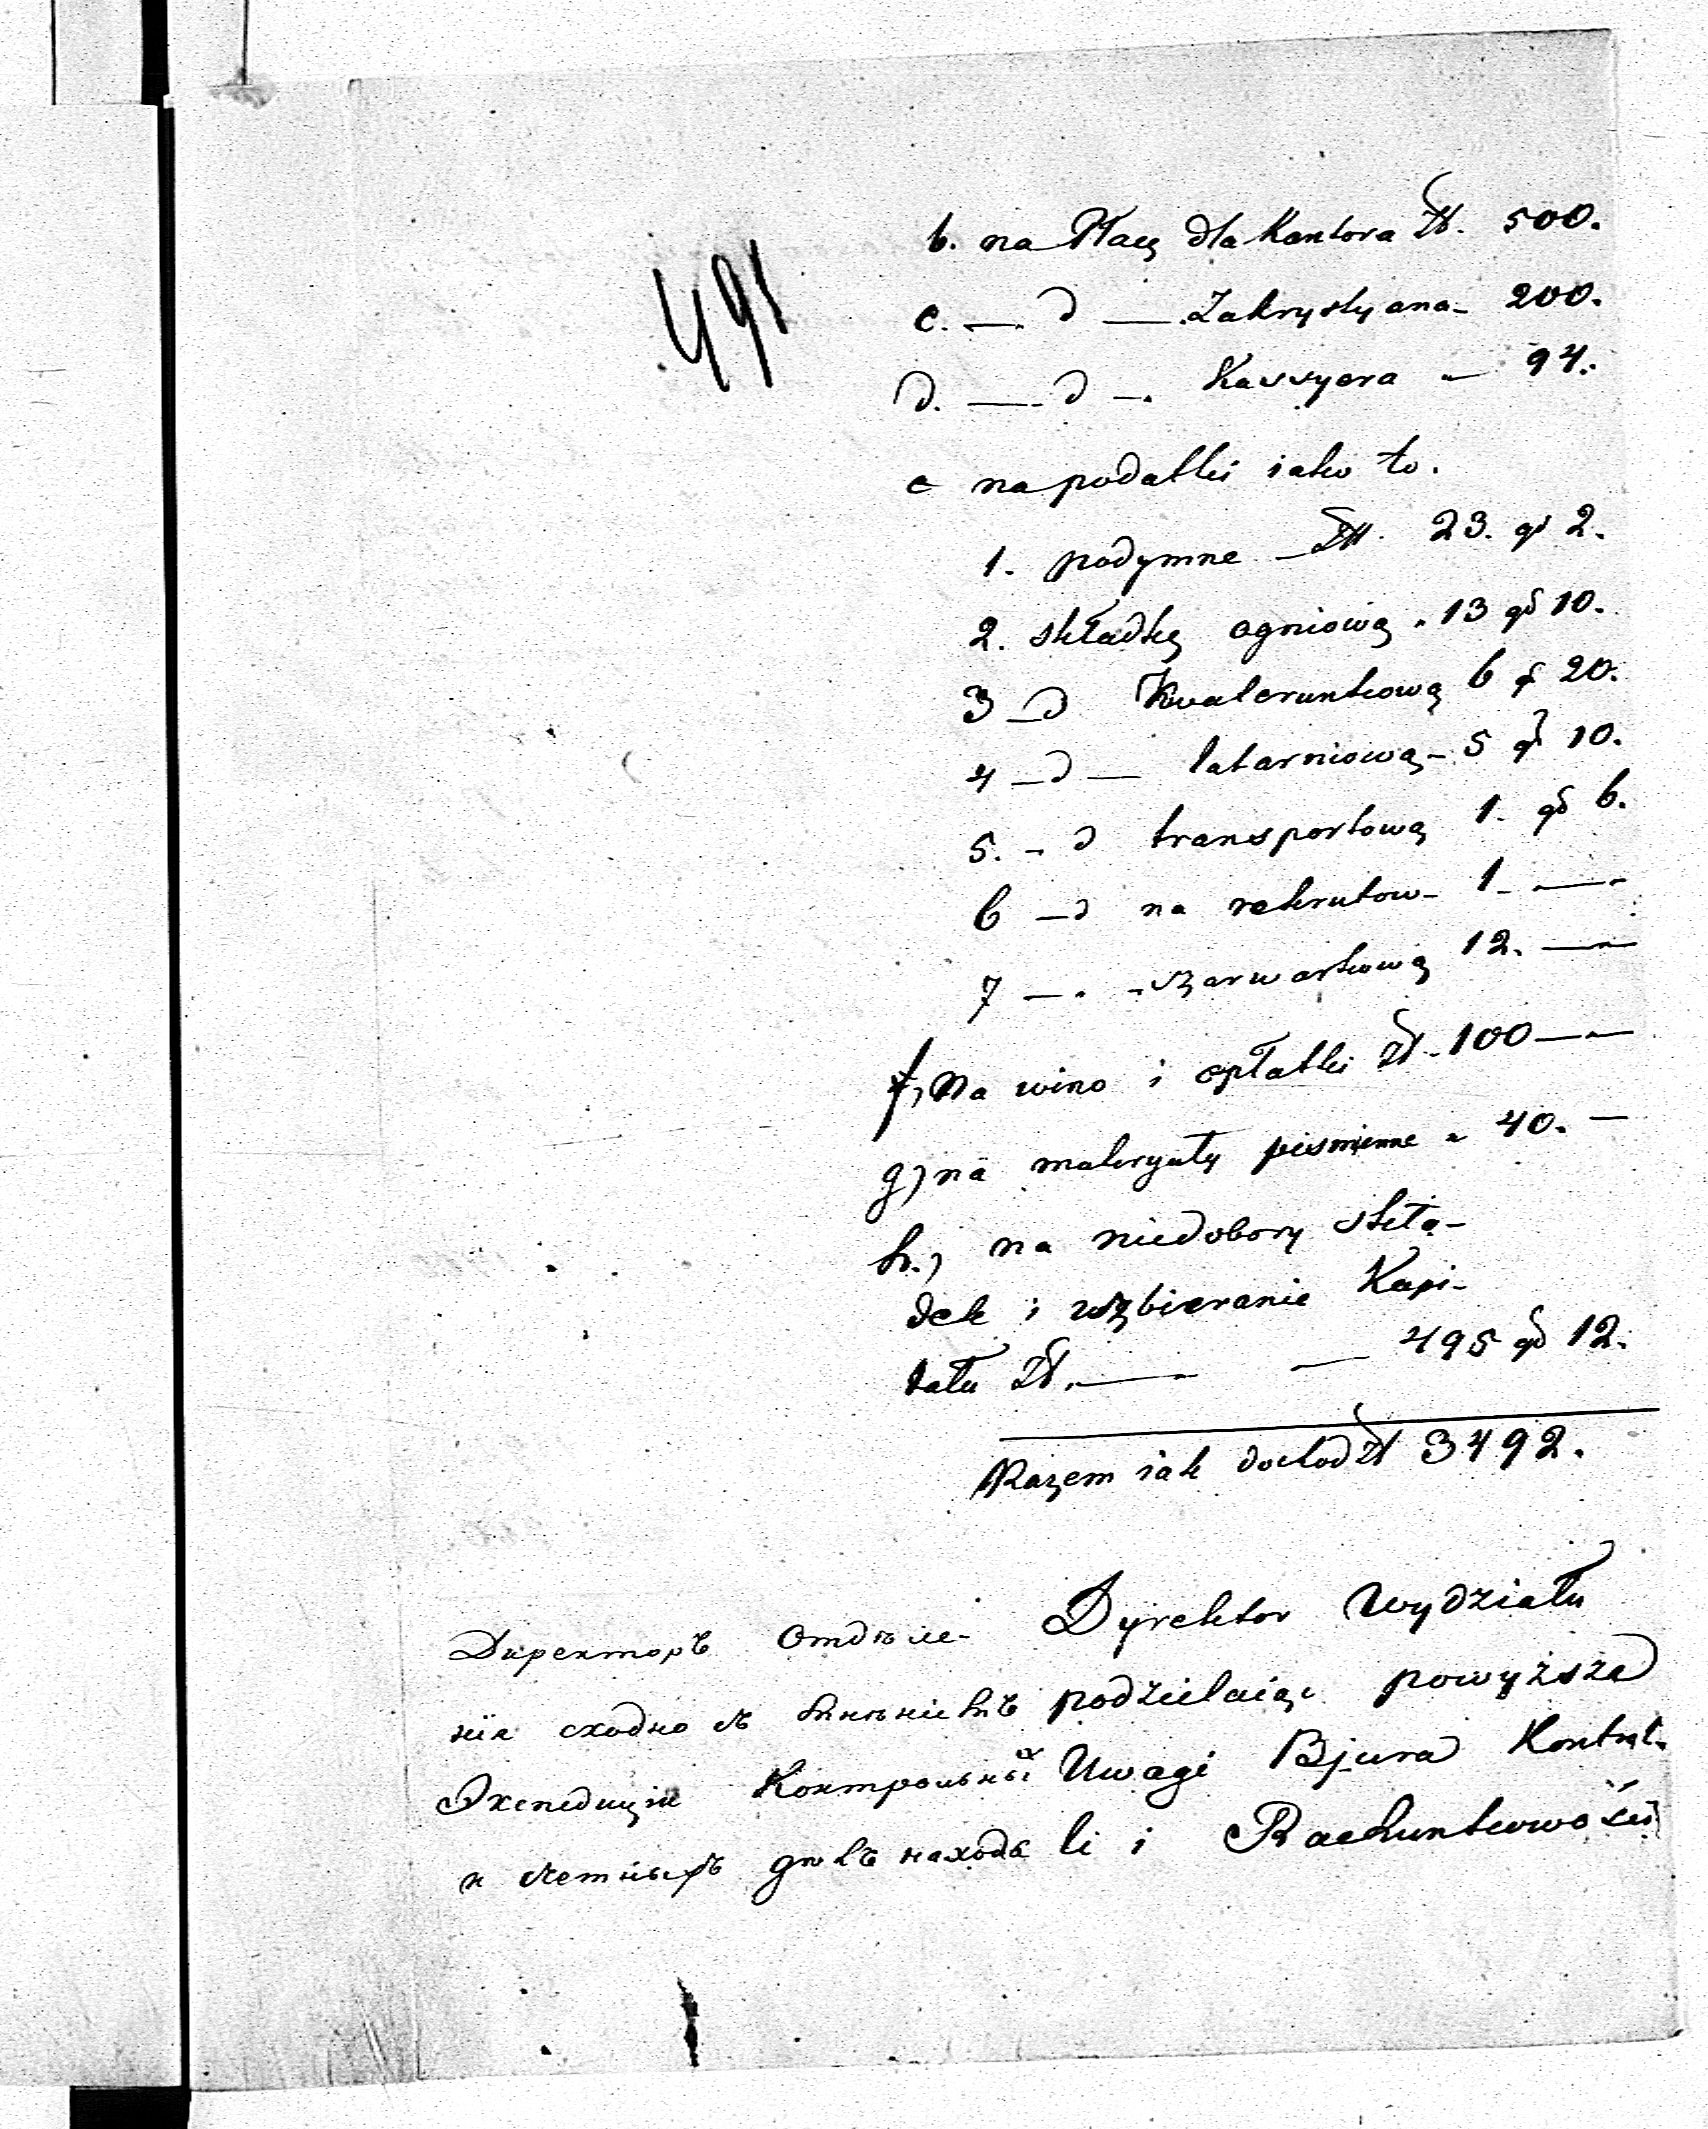 491
b. na Płacę dla Kantora Zł. 500.
c. — d — Zakrystyana - 200.
d. — d — Kassyera — 94.
e na podatki iako to.
1. podymne — Zł. 23. gr 2.
2. składkę ogniową . 13 gr 10.
3 — d Kwaterunkową 6 gr 20.
4 — d — latarniową - 5 gr 10.
5. - d transportową 1. gr 6.
6 — d na rekrutow - 1. —
7 — . - szarwarkową 12. —
f, Na wino i opłatki Zł. 100 —
g) na materyały piśmienne „ 40. —
h.) na niedobory skła-
dek i uzbieranie Kapi-
tału Zł. — — 495 gr 12.
Razem iak dochod Zł 3492.
Dyrektor Wydziału
podzielaiąc powyższe
Uwagi Bjura Kontrol.
li i Rachunkowości
Директоръ Отдѣле-
нія сходно съ мнѣніемъ
Экспедиціи Контрольных
и счетныхъ дѣлъ находя